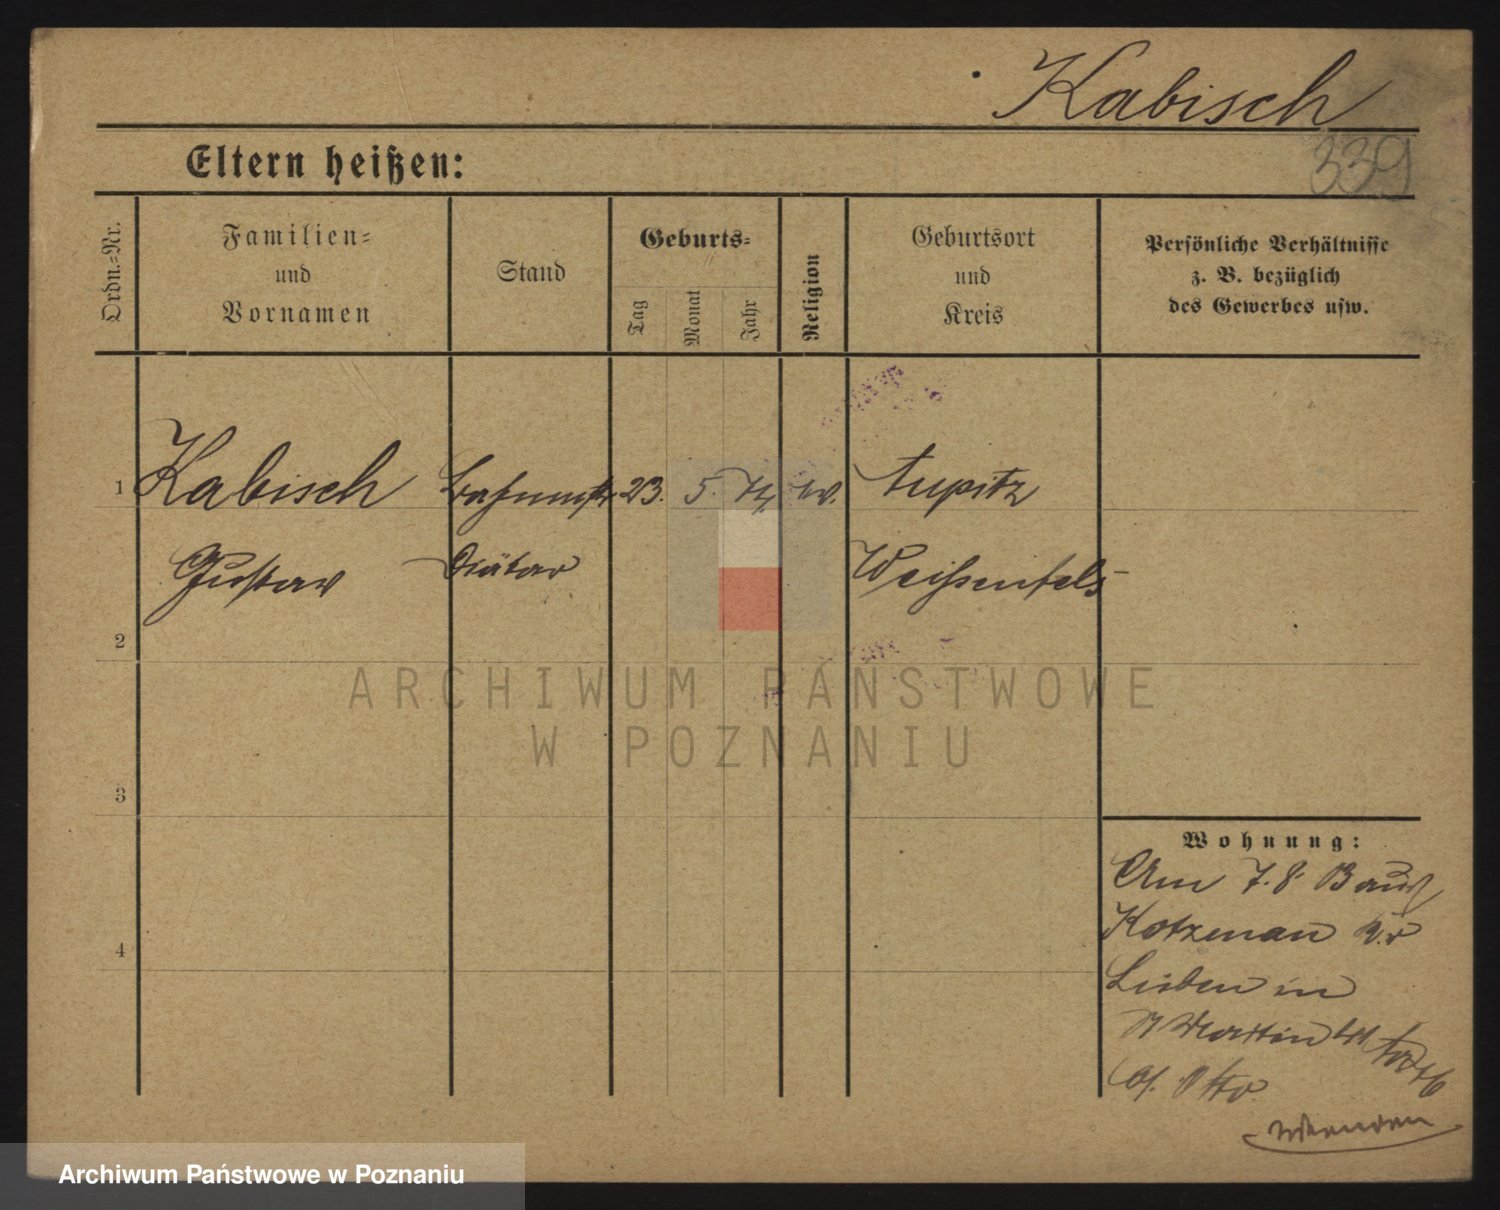 Kabisch
339
Eltern heißen:
Ordn.-Nr.
Familien-
und
Vornamen
Stand
Geburts-
Tag
Monat
Jahr
Religion
Geburtsort
und
Kreis
Persönliche Verhältnisse
z. B. bezüglich
des Gewerbes usw.
1 Kabisch 23. 5. 74
Gustav Diätar Weißenfels
2
ARCHIWUM PAŃSTWOWE
W POZNANIU
3
Wohnung:
Am 7. 8
4 Kotzenau
Lüben in
Martin
Otto
wenden
Archiwum Państwowe w Poznaniu